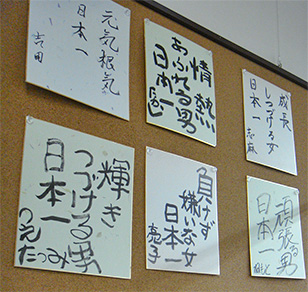 元気根気
日本一
吉田
情熱
あふれる男
日本一
成長
しつづける女
日本一
志麻
輝き
つづける男
日本一
つえたつみ
負けず
嫌いな女
日本一
亮子
頑張る男
日本一